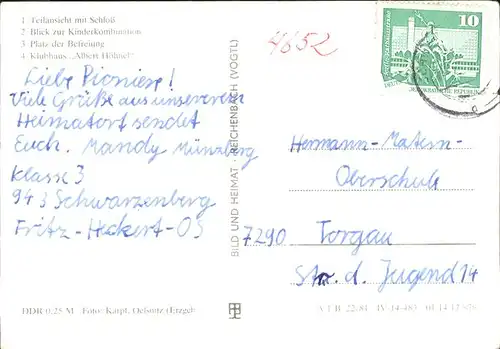 1 Teilansicht mit Schloß
2 Blick zur Kinderkombination
3 Platz der Befreiung
4 Klubhaus „Albert Hähnel“
4652
10
DEUTSCHE DEMOKRATISCHE REPUBLIK
Liebe Pioniere!
Viele Grüße aus unserem
Heimatort sendet
Euch. Mandy Münzberg
Klasse 3
943 Schwarzenberg
Fritz-Heckert-OS
BILD UND HEIMAT · REICHENBACH (VOGTL)
Hermann-Matern-
Oberschule
7290 Torgau
Str. d. Jugend 14
DDR 0,25 M Foto: Karpf, Oelsnitz (Erzgeb.)